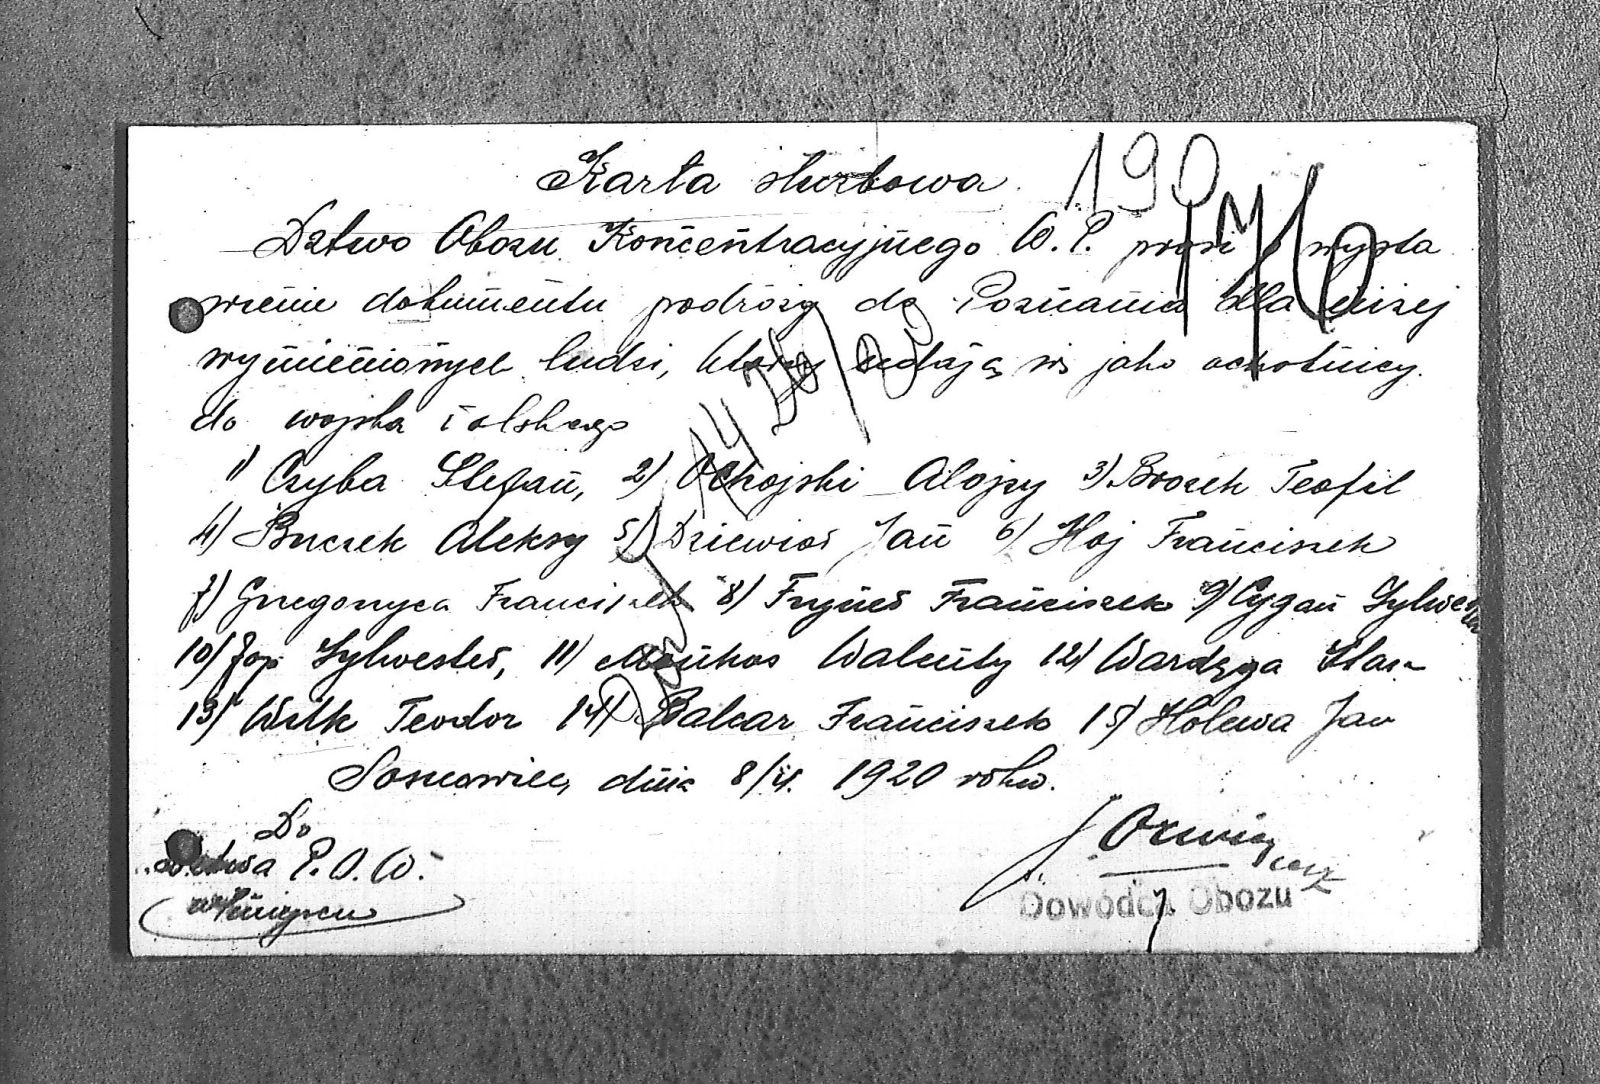 Karta służbowa
190
Dztwo Obozu Koncentracyjnego W. P. prosi o wysta
wienie dokumentu podróży do Poznania dla niżej
wymienionych ludzi, którzy udają się jako ochotnicy
do wojska Polskiego
1) Czyba Stefan, 2) Ochojski Alojzy 3) Brozek Teofil
4) Buczek Aleksy 5) Dziewior Jan 6) Haj Franciszek
7) Franciszek 8) Franciszek 9) Cygan Sylwester
10) Jop Sylwester, 11) Walenty 12) Wardzga Stan.
13) Teodor 14) Balcar Franciszek 15) Holewa Jan
Sosnowiec, dnia 8/V. 1920 roku.
Do
P. O. W.
w miejscu
Dowódca Obozu